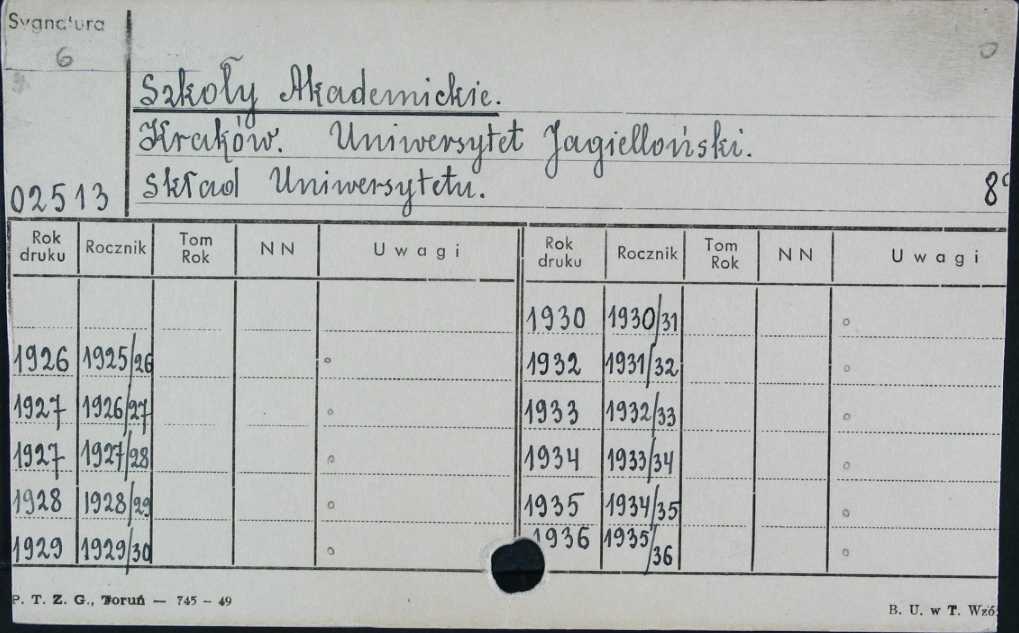 Sygnatura
6
Szkoły Akademickie.
Kraków. Uniwersytet Jagielloński.
02513 Skład Uniwersytetu. 8°
Rok druku Rocznik Tom Rok NN Uwagi Rok druku Rocznik Tom Rok NN Uwagi
1930 1930/31
1926 1925/26 1932 1931/32
1927 1926/27 1933 1932/33
1927 1927/28 1934 1933/34
1928 1928/29 1935 1934/35
1929 1929/30 1936 1935/36
P. T. Z. G., Toruń — 745 - 49 B. U. w T. Wzó